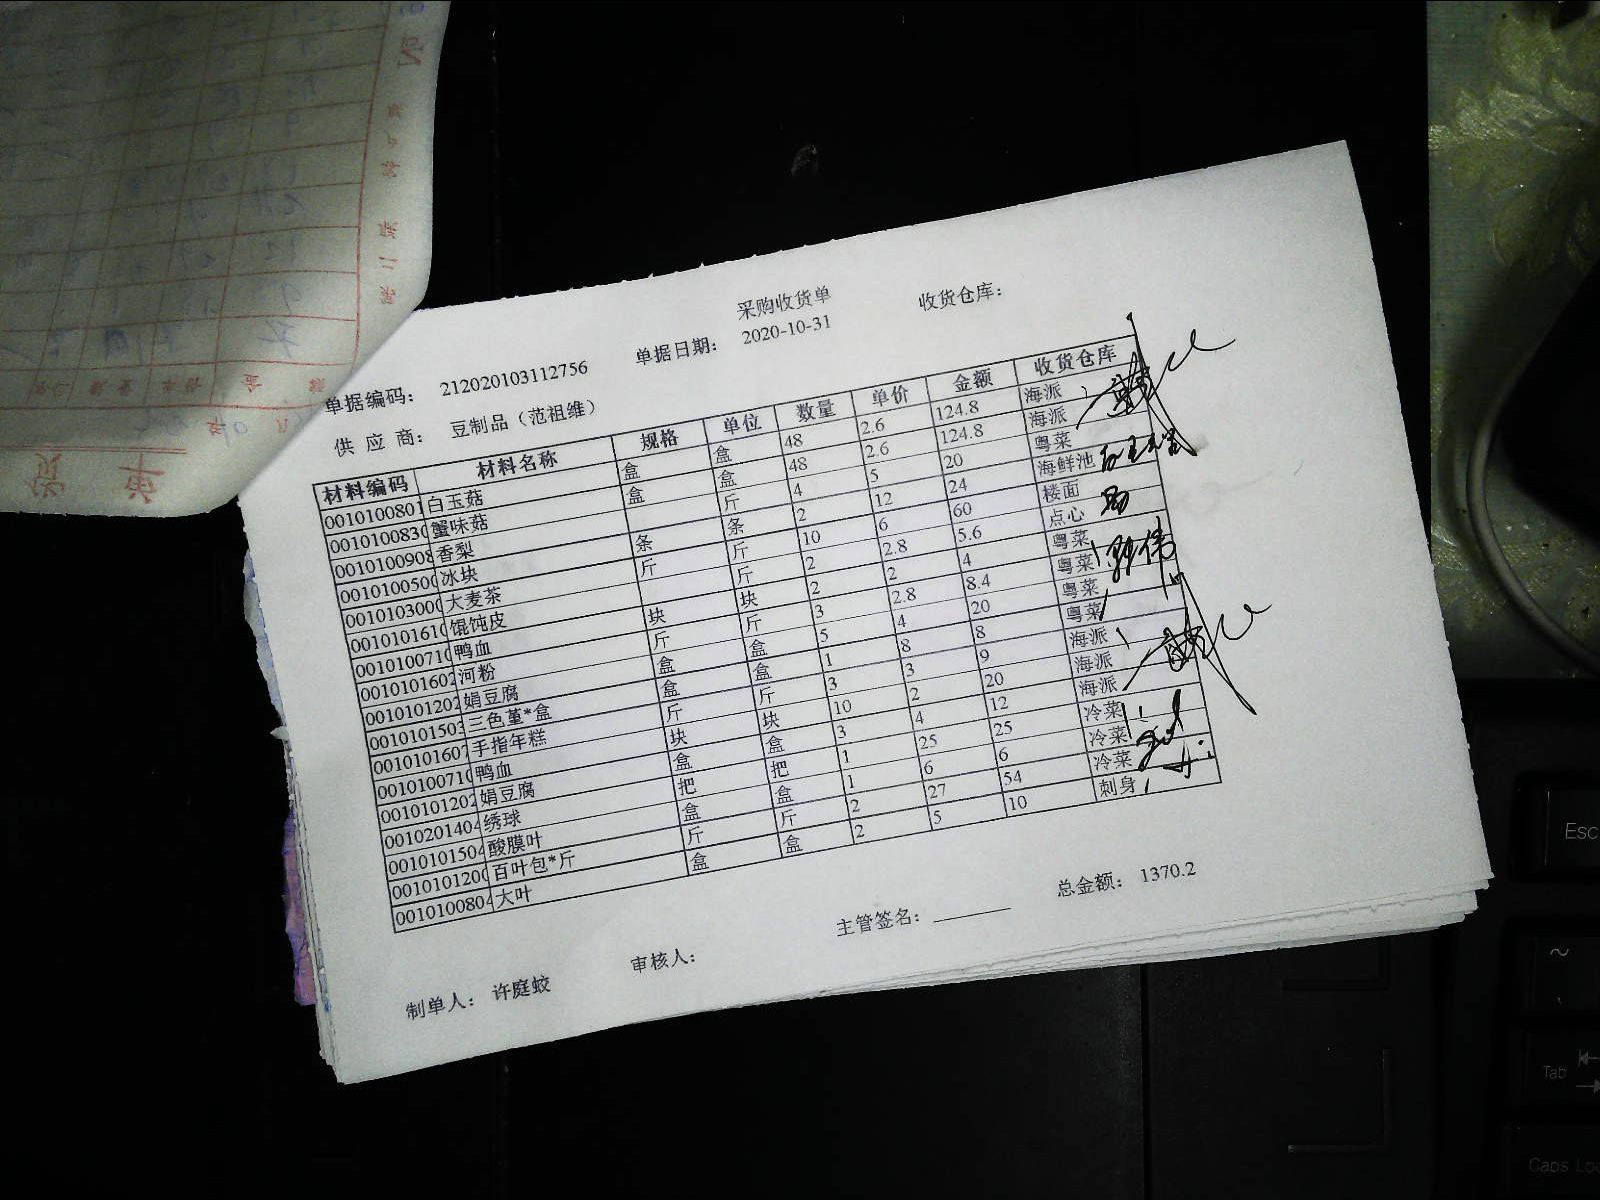 采购收货单
单据编码： 212020103112756 单据日期： 2020-10-31 收货仓库：
供 应 商： 豆制品（范祖维）
材料编码 材料名称 规格 单位 数量 单价 金额 收货仓库
0010100801 白玉菇 盒 盒 48 2.6 124.8 海派
001010083 蟹味菇 盒 盒 48 2.6 124.8 海派
0010100908 香梨 斤 4 5 20 粤菜
001010050 冰块 条 条 2 12 24 海鲜池
001010300 大麦茶 斤 斤 10 6 60 楼面
001010161 馄饨皮 斤 2 2.8 5.6 点心
001010071 鸭血 块 块 2 2 4 粤菜
0010101602 河粉 斤 斤 3 2.8 8.4 粤菜
0010101202 娟豆腐 盒 盒 5 4 20 粤菜
0010101503 三色堇*盒 盒 盒 1 8 8 粤菜
0010101607 手指年糕 斤 斤 3 3 9 海派
001010071 鸭血 块 块 10 2 20 海派
0010101202 娟豆腐 盒 盒 3 4 12 海派
0010201404 绣球 把 把 1 25 25 冷菜
0010101504 酸膜叶 盒 盒 1 6 6 冷菜
001010120 百叶包*斤 斤 斤 2 27 54 冷菜
0010100804 大叶 盒 盒 2 5 10 刺身
制单人： 许庭蛟 审核人： 主管签名： 总金额： 1370.2
Esc
Tab
Caps